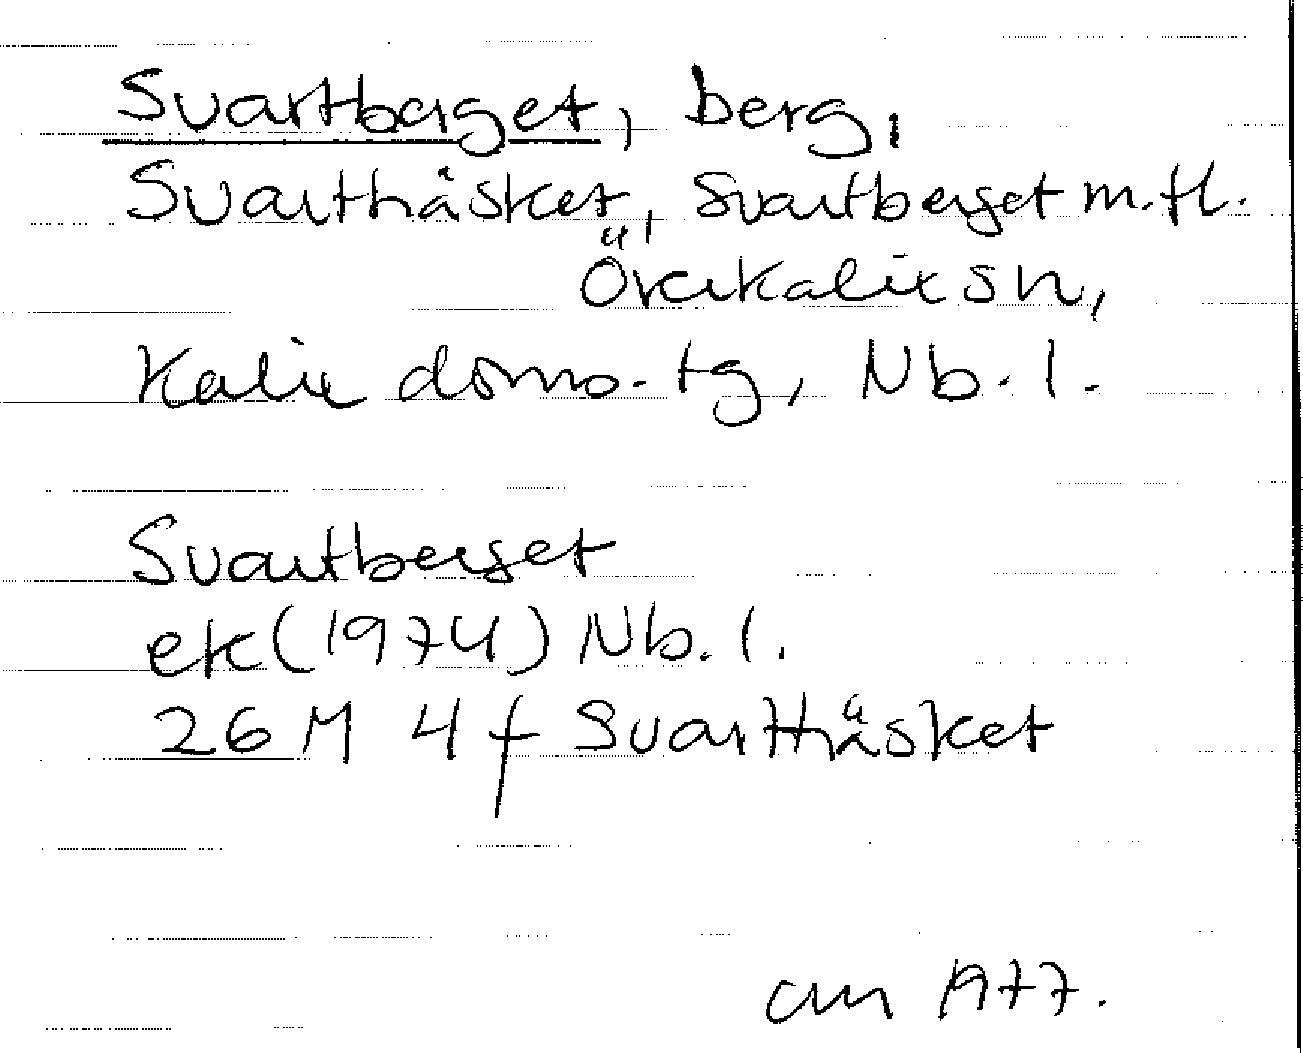 Svartberget, berg,
Svarthäsket, Svartberget m.fl.
Överkalix sn,
Kalix doms.tg, Nb. l.
Svartberget
ek (1974) Nb. l.
26 M 4 f Svarthäsket
1977.